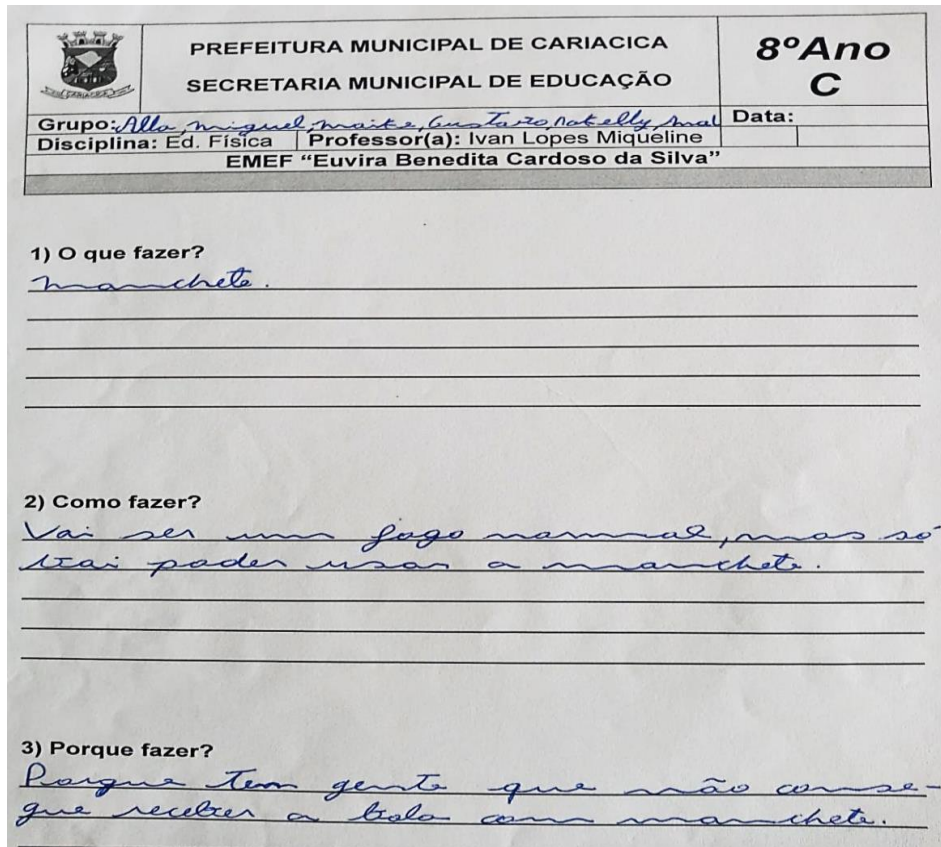 PREFEITURA MUNICIPAL DE CARIACICA
SECRETARIA MUNICIPAL DE EDUCAÇÃO
8ºAno
C
CARIACICA
Grupo: Alla, miguel, maike, Gustavo, natelly, mal
Data:
Disciplina: Ed. Física Professor(a): Ivan Lopes Miqueline
EMEF “Euvira Benedita Cardoso da Silva”
1) O que fazer?
manchete.
2) Como fazer?
Vai ser um jogo normal, mas só
vai poder usar a manchete.
3) Porque fazer?
Porque tem gente que não conse-
gue receber a bola com manchete.